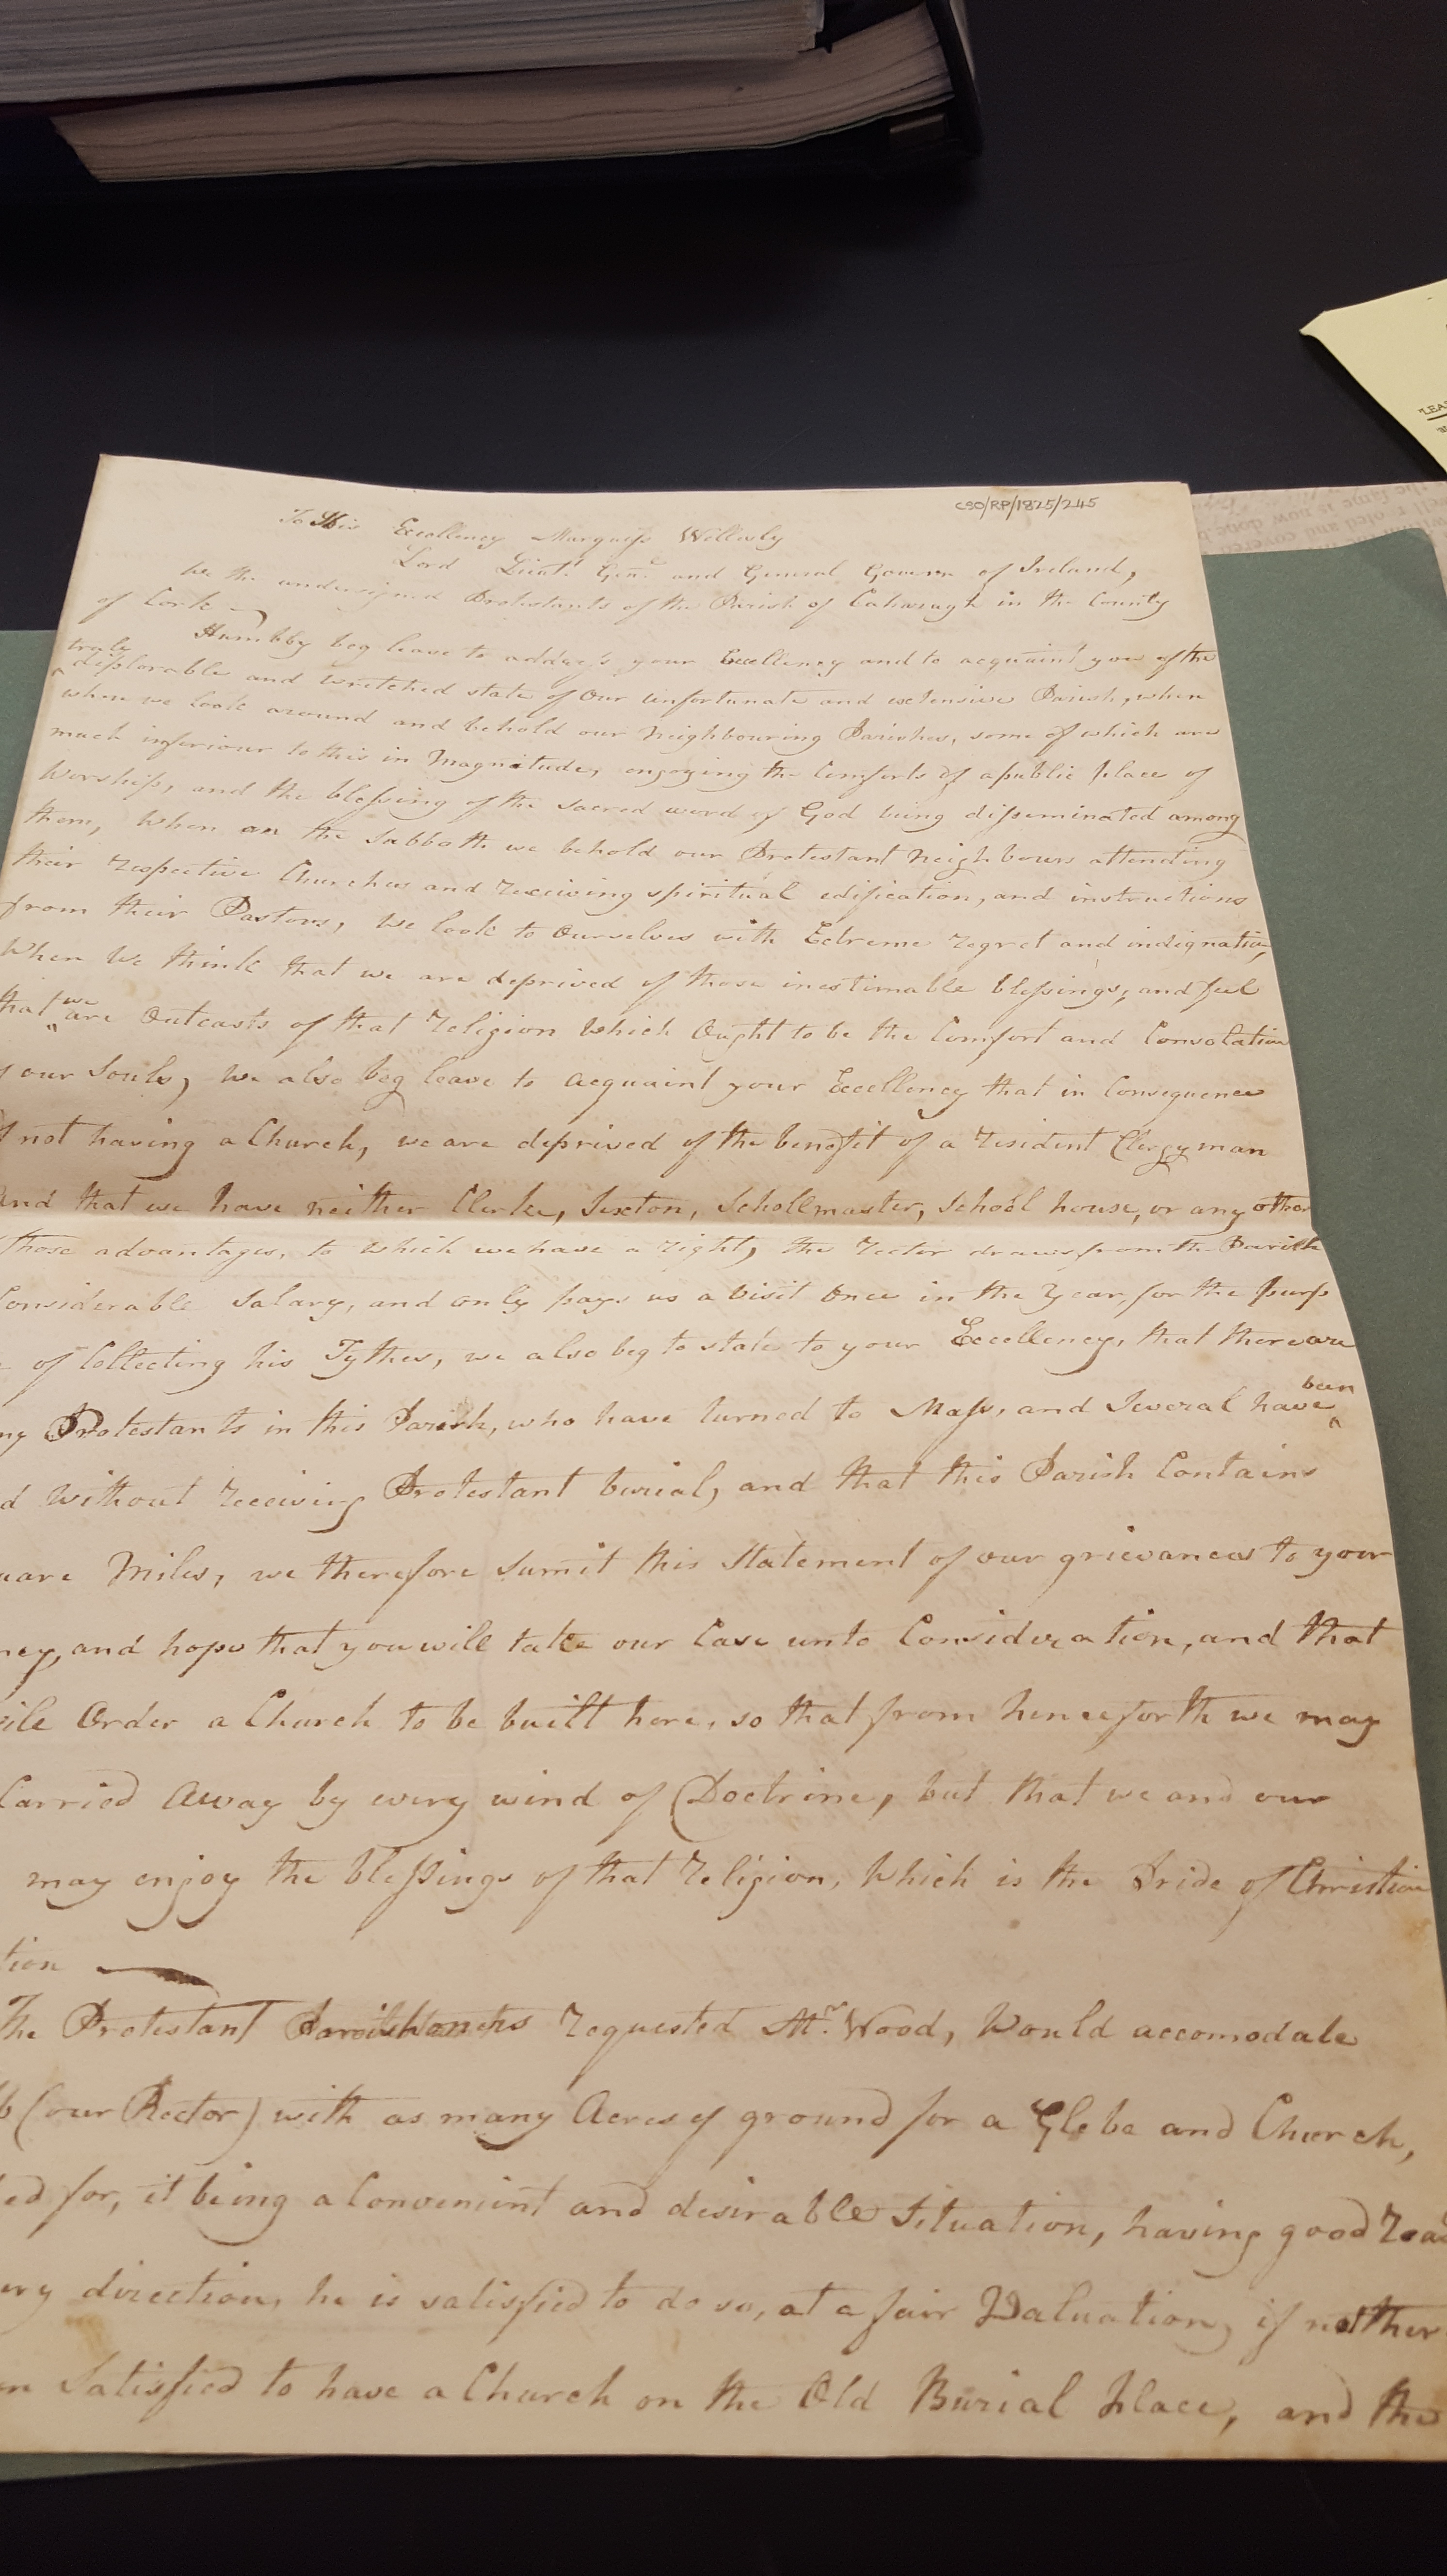 CSO/RP/1825/245
To His Excellency Marquess Wellesly
Lord Lieut. Genl. and General Governr of Ireland,
We the undersigned Protestants of the Parish of Caheragh in the County
of Cork
Humbly beg leave to address your Excellency and to acquaint you of the
truly
deplorable and wretched state of our unfortunate and extensive Parish, when
when we look around and behold our Neighbouring Parishes, some of which are
much inferiour to this in Magnitude, enjoying the Comforts of a public place of
Worship, and the blessing of the sacred word of God being disseminated among
them, When on the Sabbath we behold our Protestant Neighbours attending
their respective Churches and receiving spiritual edification, and instructions
from their Pastors, we look to ourselves with Extreme regret and indignation,
When we think that we are deprived of those inestimable blessings, and feel
that we are Outcasts of that religion which Ought to be the Comfort and Consolation
our Souls, we also beg leave to acquaint your Excellency that in Consequence
not having a Church, we are deprived of the benefit of a resident Clergyman
and that we have neither Clerke, Sexton, Schollmaster, School house, or any other
those advantages, to which we have a right, the rector draws from the Parish
Considerable Salary, and only pays us a visit once in the year, for the purp
of Collecting his Tythes, we also beg to state to your Excellency, that there are
ny Protestants in this Parish, who have turned to Mass, and Several have been
d without receiving Protestant burial, and that this Parish Contains
uare Miles, we therefore sumit this Statement of our grievances to your
ncy, and hope that you will take our Case unto Consideration, and that
ile Order a Church to be built here, so that from henceforth we may
Carried Away by every wind of Doctrine, but that we and our
may enjoy the blessings of that religion, Which is the Pride of Christian
tion
The Protestant Parishoners requested Mr. Wood, Would accomodate
b (our Rector) with as many Acres of ground for a Glebe and Church,
ed for, it being a Convenient and desirable Situation, having good roa
ery direction, he is satisfied to do so, at a fair Valuation, if nother
n Satisfied to have a Church on the Old Burial Place, and the